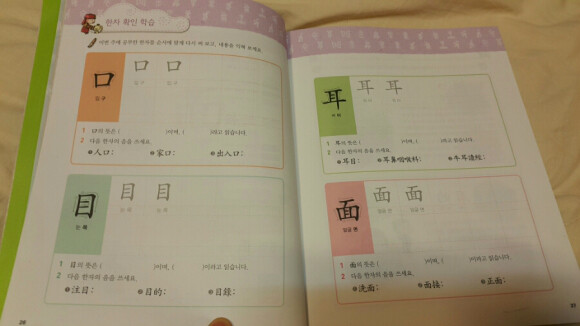 한자 확인 학습
이번 주에 공부한 한자를 순서에 맞게 다시 써 보고, 내용을 익혀 보세요.
口 口 口
입 구
1 口의 뜻은 ( )이며, ( )라고 읽습니다.
2 다음 한자의 음을 쓰세요.
人口: 家口: 出入口:
目 目 目
눈 목
1 目의 뜻은 ( )이며, ( )이라고 읽습니다.
2 다음 한자의 음을 쓰세요.
注目: 目的: 目錄:
耳 耳 耳
귀 이
1 耳의 뜻은 ( )이며, ( )라고 읽습니다.
2 다음 한자의 음을 쓰세요.
耳目: 耳鼻咽喉科: 牛耳讀經:
面 面 面
얼굴 면 얼굴 면 얼굴 면
1 面의 뜻은 ( )이며, ( )이라고 읽습니다.
2 다음 한자의 음을 쓰세요.
洗面: 面接: 正面: